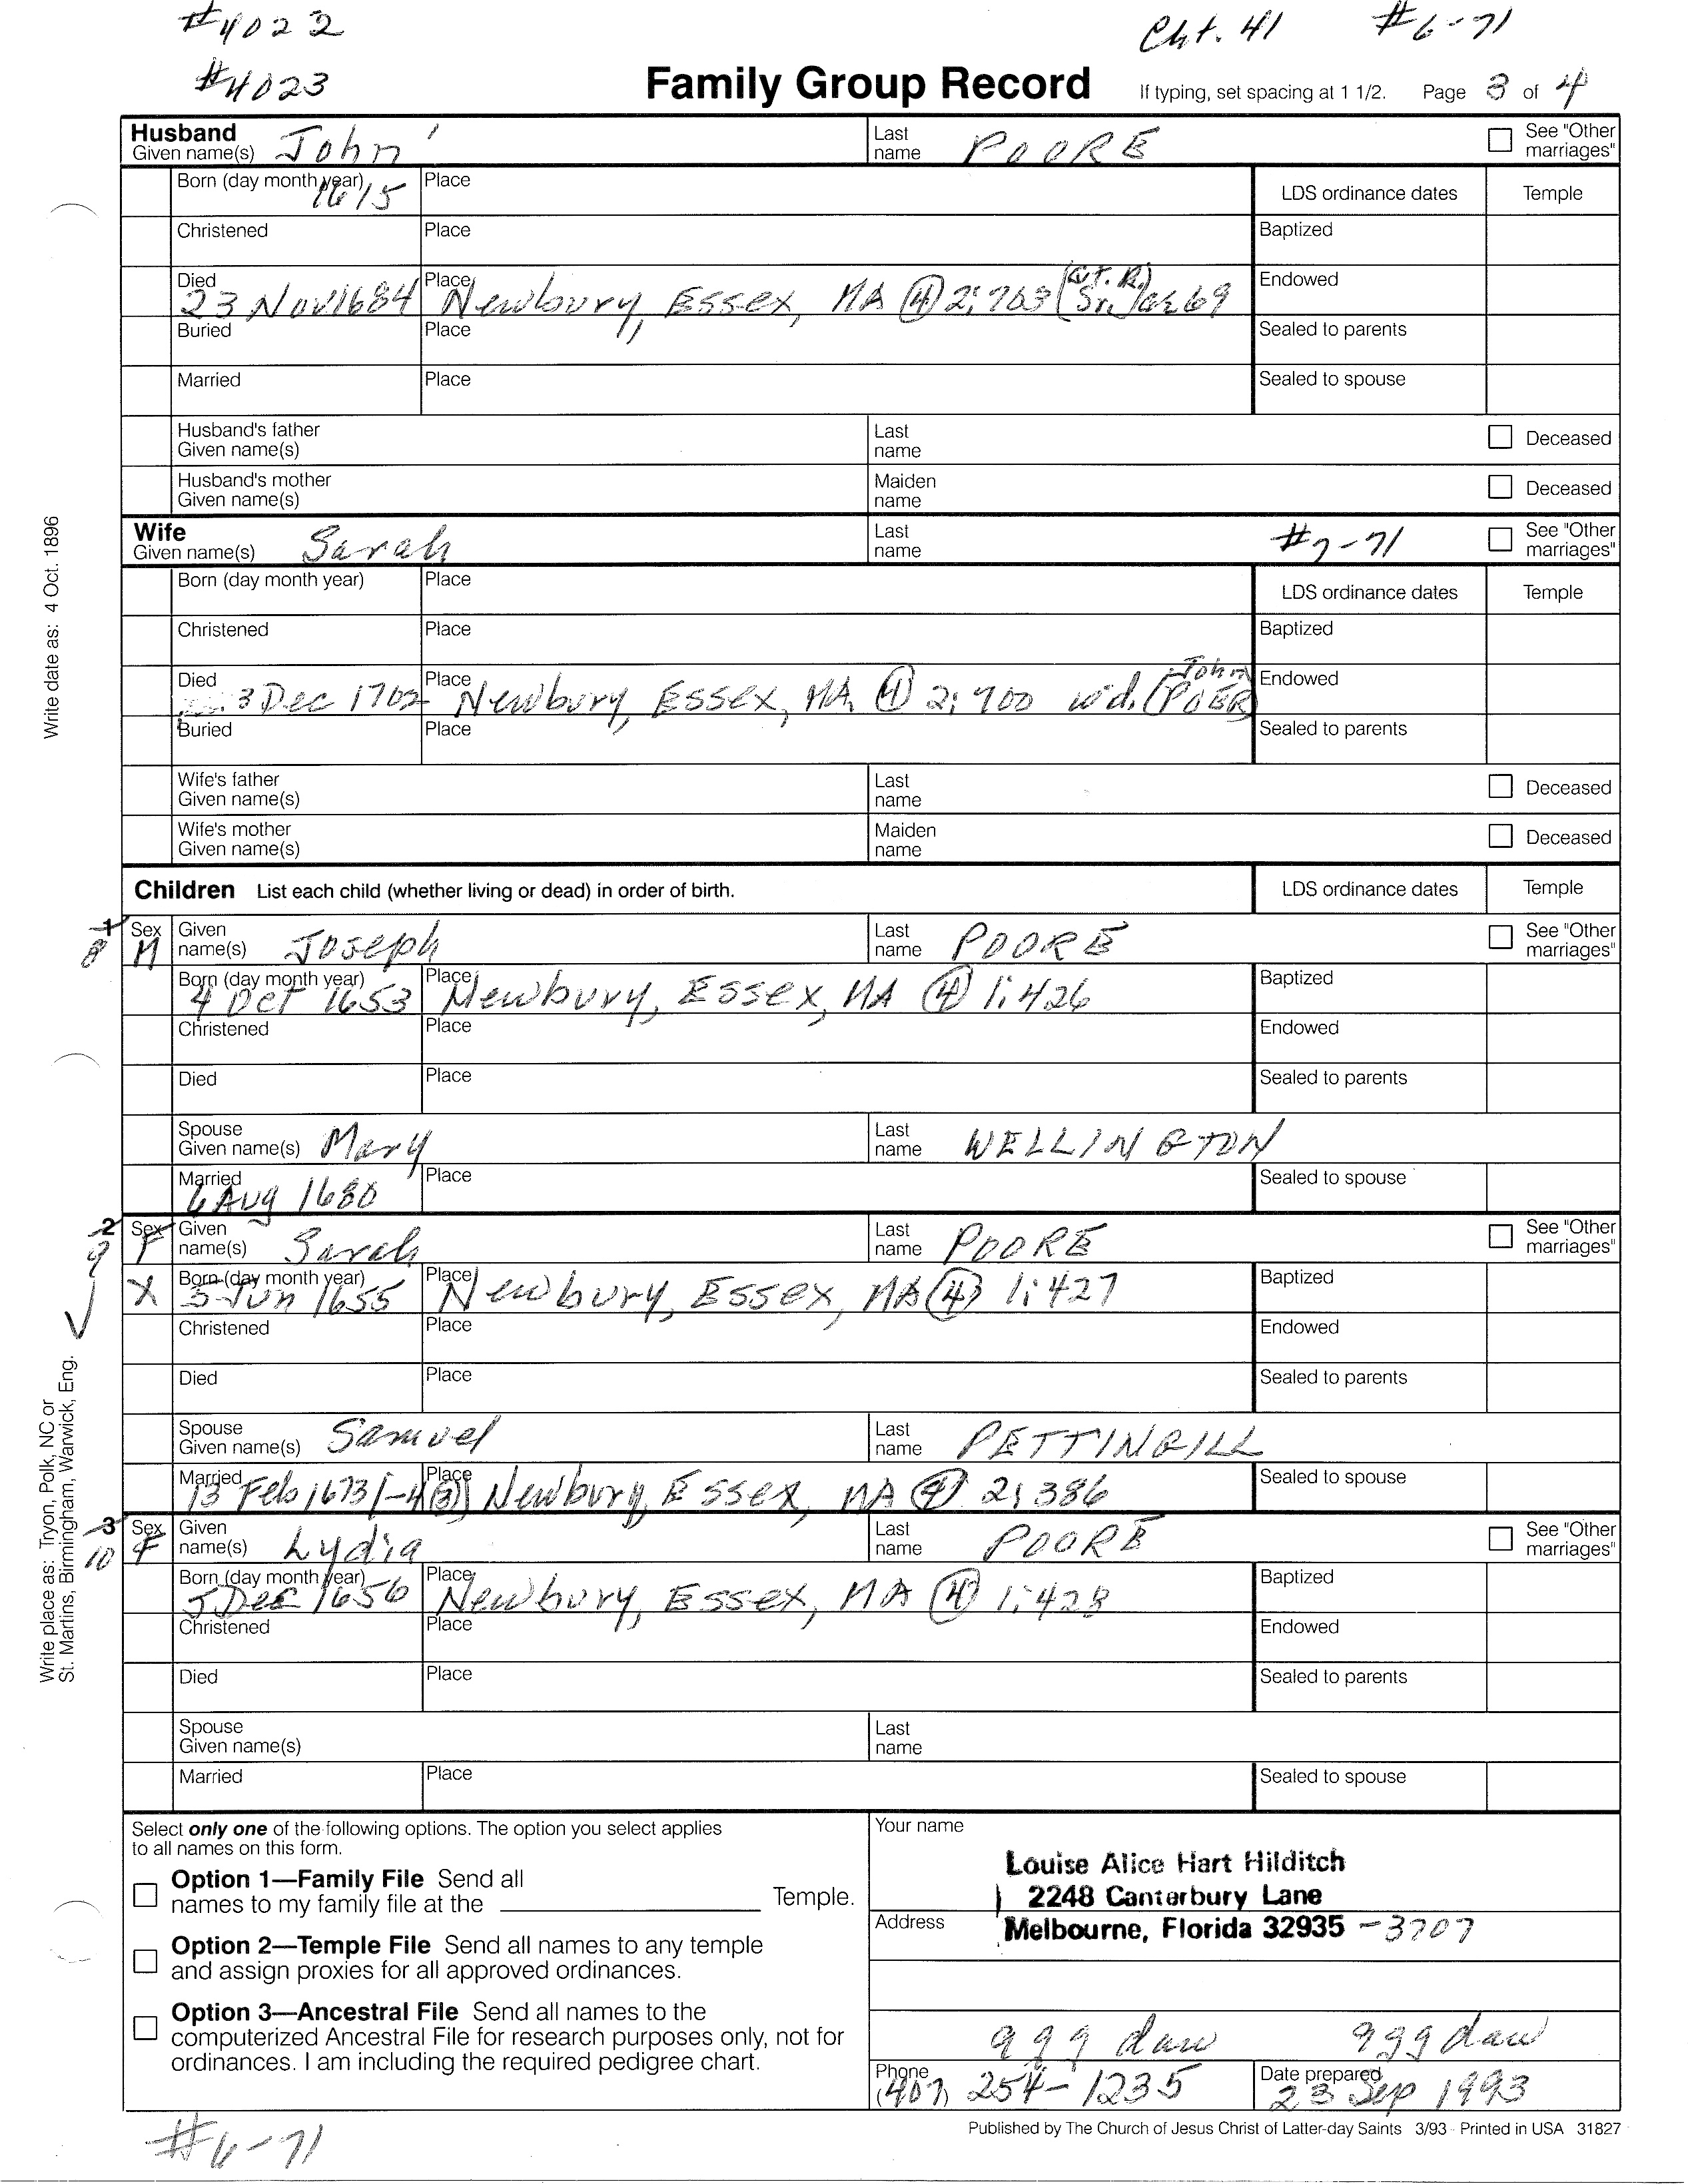 #4022
Cht. 41 #6-71
#4023
Family Group Record If typing, set spacing at 1 1/2. Page 3 of 4
Husband
Given name(s) John
Last name POORE
See "Other marriages"
Born (day month year) 1615 Place LDS ordinance dates Temple
Christened Place Baptized
Died 23 Nov 1684 Place Newbury, Essex, MA (4) 2:703 Endowed
Buried Place Sealed to parents
Married Place Sealed to spouse
Husband's father
Given name(s)
Last name
Deceased
Husband's mother
Given name(s)
Maiden name
Deceased
Wife
Given name(s) Sarah
Last name #7-71
See "Other marriages"
Born (day month year) Place LDS ordinance dates Temple
Christened Place Baptized
Died 3 Dec 1702 Place Newbury, Essex, MA (4) 2:700 wid. (John POER) Endowed
Buried Place Sealed to parents
Wife's father
Given name(s)
Last name
Deceased
Wife's mother
Given name(s)
Maiden name
Deceased
Children List each child (whether living or dead) in order of birth. LDS ordinance dates Temple
1
8
Sex M
Given name(s) Joseph
Last name POORE
See "Other marriages"
Born (day month year) 4 Oct 1653 Place Newbury, Essex, MA (4) 1:426 Baptized
Christened Place Endowed
Died Place Sealed to parents
Spouse
Given name(s) Mary
Last name WELLINGTON
Married 6 Aug 1680 Place Sealed to spouse
2
9
Sex F
Given name(s) Sarah
Last name POORE
See "Other marriages"
X Born (day month year) 3 Jun 1655 Place Newbury, Essex, MA (4) 1:427 Baptized
Christened Place Endowed
Died Place Sealed to parents
Spouse
Given name(s) Samuel
Last name PETTINGILL
Married 13 Feb 1673/-4 (3) Place Newbury, Essex, MA (4) 2:386 Sealed to spouse
3
10
Sex F
Given name(s) Lydia
Last name POORE
See "Other marriages"
Born (day month year) 5 Dec 1656 Place Newbury, Essex, MA (4) 1:428 Baptized
Christened Place Endowed
Died Place Sealed to parents
Spouse
Given name(s)
Last name
Married Place Sealed to spouse
Write date as: 4 Oct. 1896
Write place as: Tryon, Polk, NC or
St. Martins, Birmingham, Warwick, Eng.
Select only one of the following options. The option you select applies
to all names on this form.
Option 1—Family File Send all
names to my family file at the Temple.
Option 2—Temple File Send all names to any temple
and assign proxies for all approved ordinances.
Option 3—Ancestral File Send all names to the
computerized Ancestral File for research purposes only, not for
ordinances. I am including the required pedigree chart.
Your name
Louise Alice Hart Hilditch
2248 Canterbury Lane
Address Melbourne, Florida 32935 -3707
ggg daw ggg daw
Phone (407) 254-1235 Date prepared 23 Sep 1993
Published by The Church of Jesus Christ of Latter-day Saints 3/93 Printed in USA 31827
#6-71